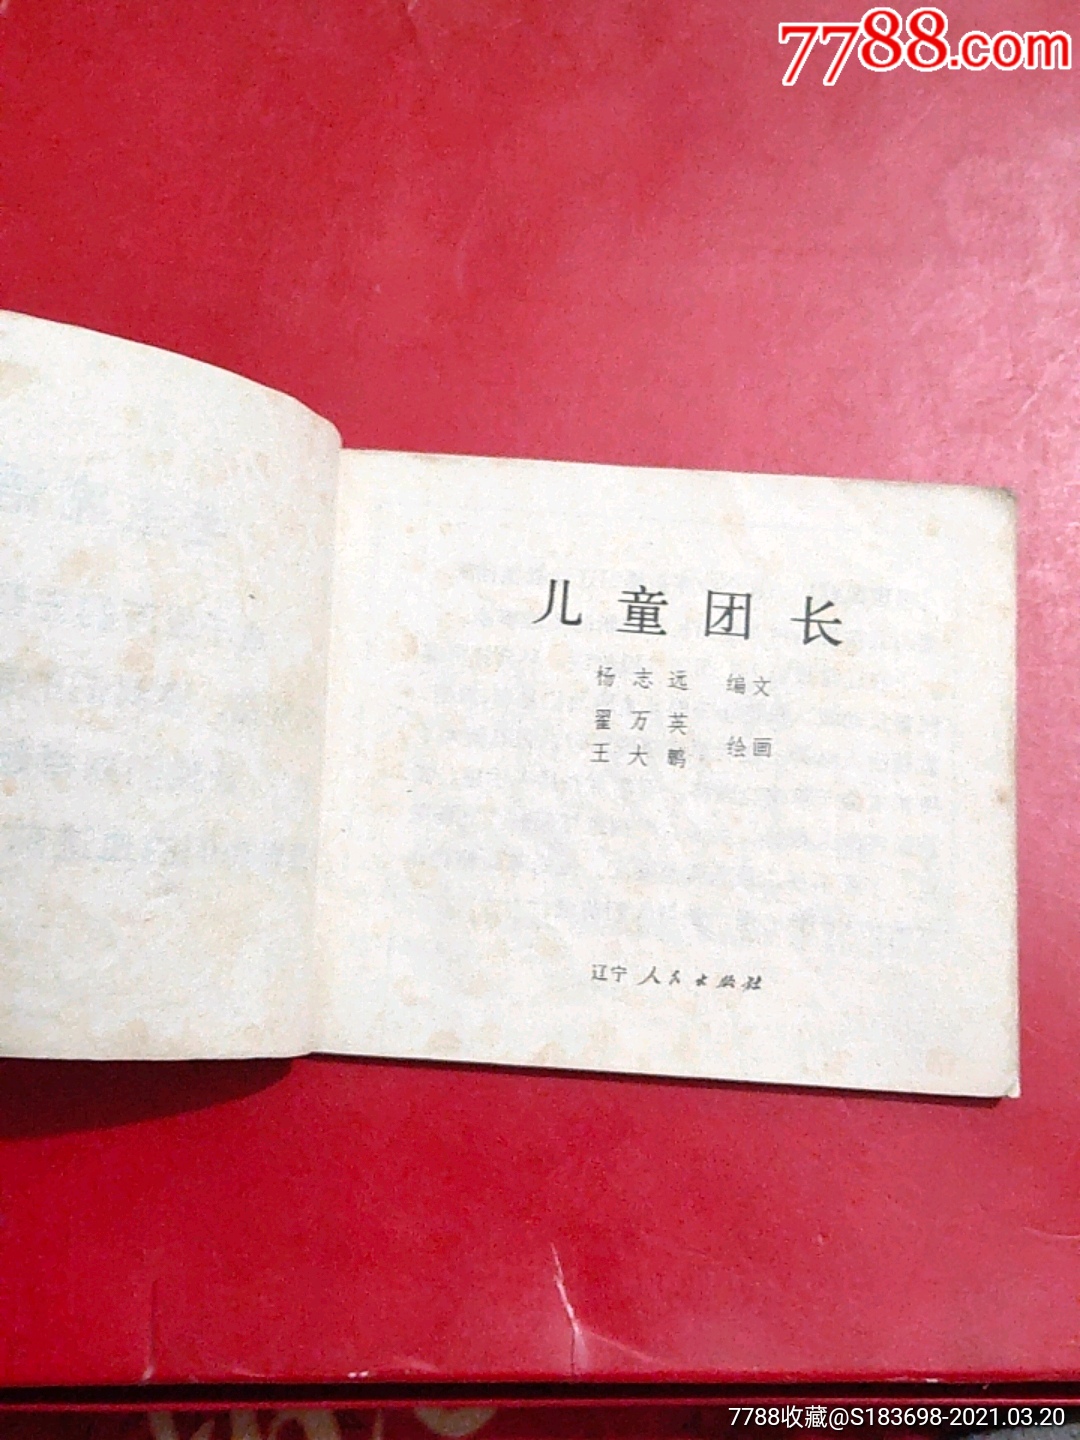 7788.com
儿童团长
杨志远 编文
翟万英
王大鹏 绘画
辽宁人民出版社
7788收藏@S183698-2021.03.20